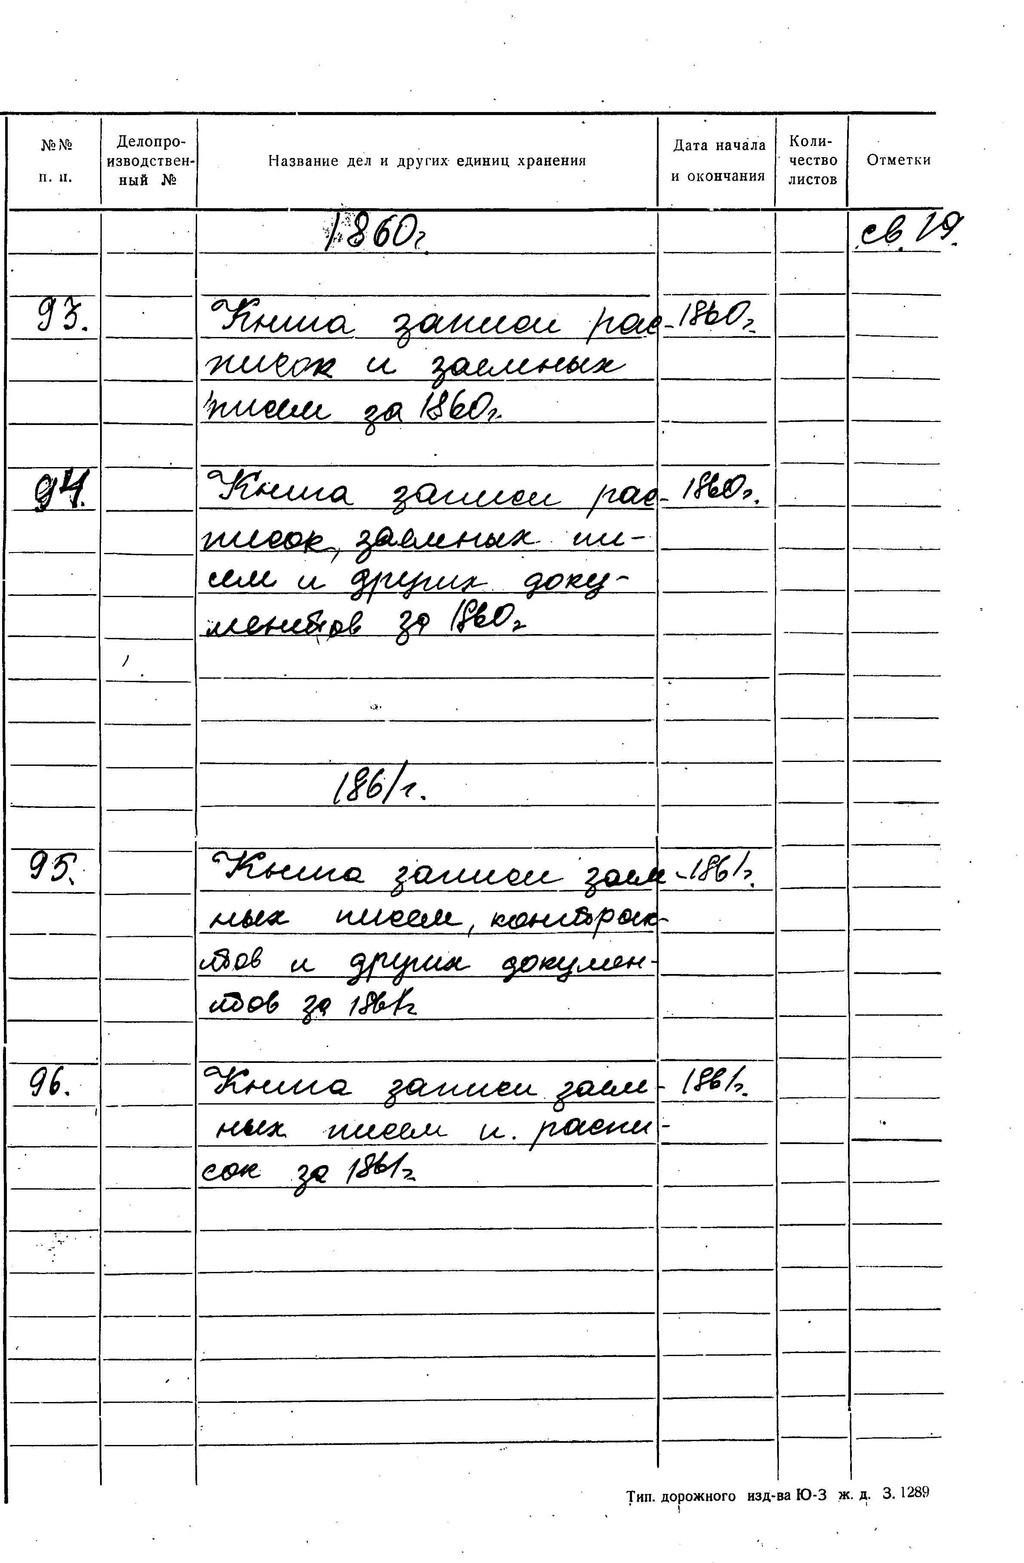 №№ п. п.
Делопро-
изводствен-
ный №
Название дел и других единиц хранения
Дата начала
и окончания
Коли-
чество
листов
Отметки
1860г. св. 19.
93. Книга записи рас- 1860г.
писок и заемных
писем за 1860г.
94. Книга записи рас- 1860г.
писок, заемных пи-
сем и других доку-
ментов за 1860г.
1861г.
95. Книга записи заем- 1861г.
ных писем, контрак-
тов и других докумен-
тов за 1861г.
96. Книга записи заем- 1861г.
ных писем и распи-
сок за 1861г.
Тип. дорожного изд-ва Ю-З ж. д. З. 1289